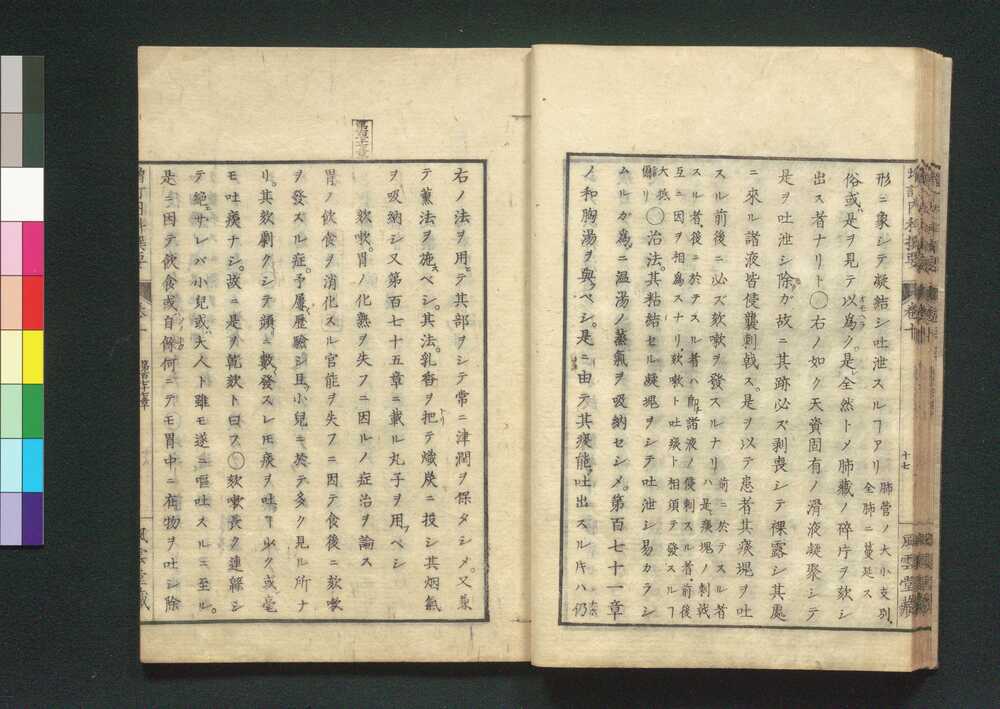 形ニ象シテ凝結シ吐泄スルヿアリ 肺管ノ大小支別、全肺ニ蔓延ス
俗或是ヲ見テ以爲ク是全然トメ肺藏ノ碎片ヲ欬シ
出ス者ナリト〇右ノ如ク天資固有ノ滑液凝聚シテ
是ヲ吐泄シ除クガ故ニ其跡必ズ剥喪シテ裸露シ其處
ニ來ル諸液皆侵襲刺戟ス。是ヲ以テ患者其痰塊ヲ吐
スル前後ニ必ズ欬嗽ヲ發スルナリ 前ニ於テスル者ハ是痰塊ノ刺戟
スル者、後ニ於テスル者ハ即諸液ノ侵刺スル者、前後
互ニ因ヲ相爲スナリ欬嗽ト吐痰ト相須テ發スルヿ
大抵
〇治法。其粘結セル凝塊ヲシテ吐泄シ易カラシ
ムルガ爲ニ温湯ノ蒸氣ヲ吸納セシメ。第百七十一章
ノ和胸湯ヲ與ベシ。是ニ由テ其痰能吐出スルキハ仍
増訂内科撰要 卷十
十七
風雲堂藏
右ノ法ヲ用テ其部ヲシテ常ニ津潤ヲ保タシメ。又兼
テ薫法ヲ施ベシ。其法。乳香ヲ把テ熾炭ニ投シ其烟氣
ヲ吸納シ又第百七十五章ニ載ル丸子ヲ用ベシ
欬嗽。胃ノ化熟ヲ失フニ因ルノ症治ヲ論ス
胃ノ飲食ヲ消化スル官能ヲ失フニ因テ食後ニ欬嗽
ヲ發スル症。予屢歴驗シ且。小兒ニ於テ多ク見ル所ナ
リ。其欬劇クシテ頭ニ數發スレモ痰ヲ吐ヿ少ク或毫
モ吐痰ナシ。故ニ是ヲ乾欬ト曰フ。〇欬嗽長ク連緜シ
テ絶サレバ小兒或大人ト雖モ遂ニ嘔吐スルニ至ル。
是ニ因テ飲食或自餘何ニテモ胃中ニ在物ヲ吐シ除
風雲堂藏